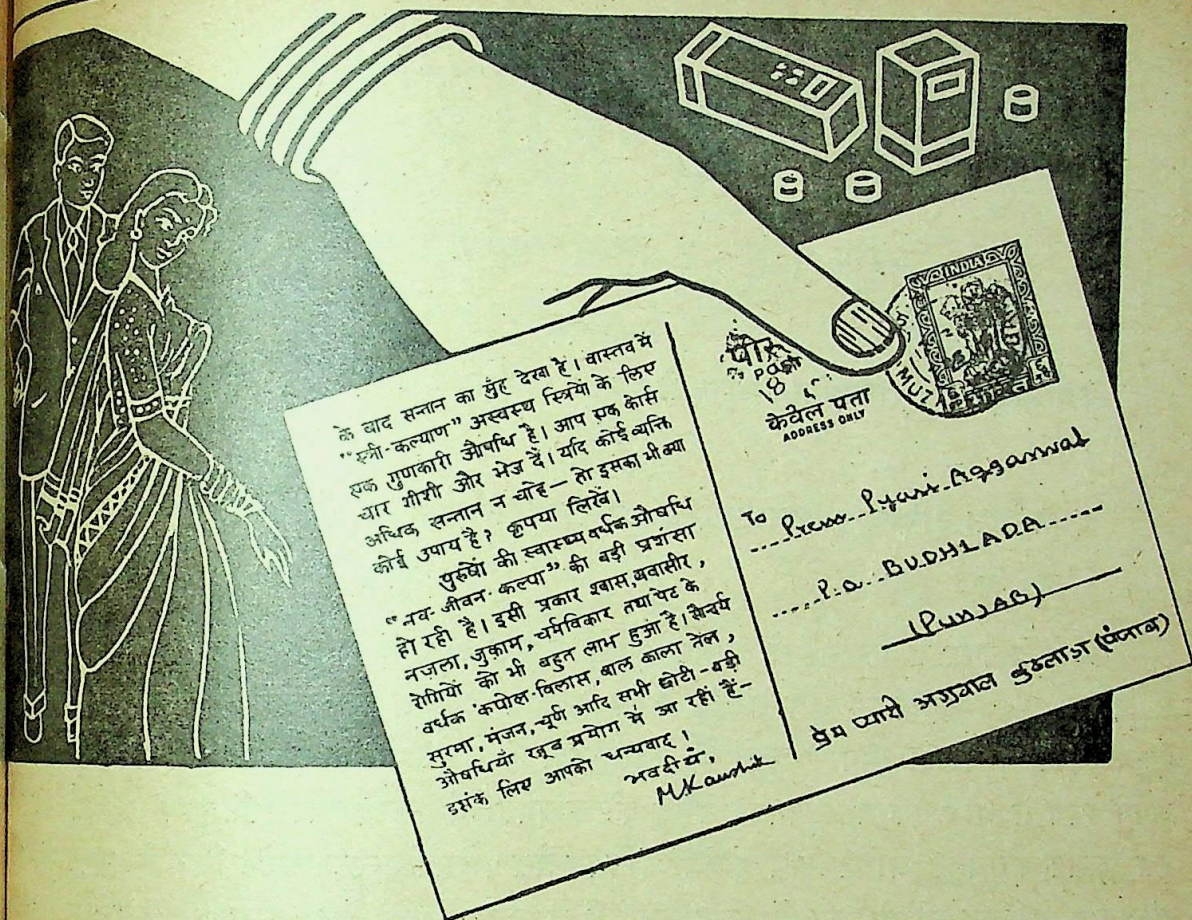 के बाद सन्तान का मुँह देखा है। वास्तव में
"स्त्री-कल्याण" अस्वस्थ स्त्रियों के लिए
एक गुणकारी औषधि है। आप एक कोर्स
चार शीशी और भेज दें। यदि कोई व्यक्ति
अधिक सन्तान न चाहे— तो इसका भी क्या
कोई उपाय है? कृपया लिखें।
पुरुषों की स्वास्थ्यवर्धक औषधि
"नव-जीवन-कल्पा" की बड़ी प्रशंसा
हो रही है। इसी प्रकार श्वास, बवासीर,
नज़ला, जुकाम, चर्मविकार तथा पेट के
रोगियों को भी बहुत लाभ हुआ है। सौन्दर्य
वर्धक 'कपोल-विलास, बाल काला तेल,
सुरमा, मंजन, चूर्ण आदि सभी छोटी-बड़ी
औषधियाँ खूब प्रयोग में जा रही हैं-
इसके लिए आपको धन्यवाद।
भवदीय,
M.Kaushik
INDIA
18
केवल पता
ADDRESS ONLY
To Prem Pyari Aggarwal
P.o. BUDHLADA
(PUNJAB)
प्रेम प्यारी अग्रवाल बुढलाडा (पंजाब)